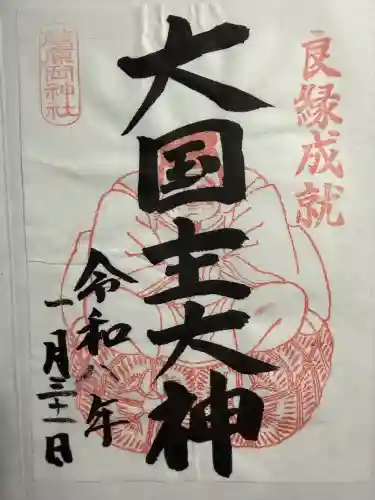 良縁成就
大国主大神
令和八年
一月三十一日